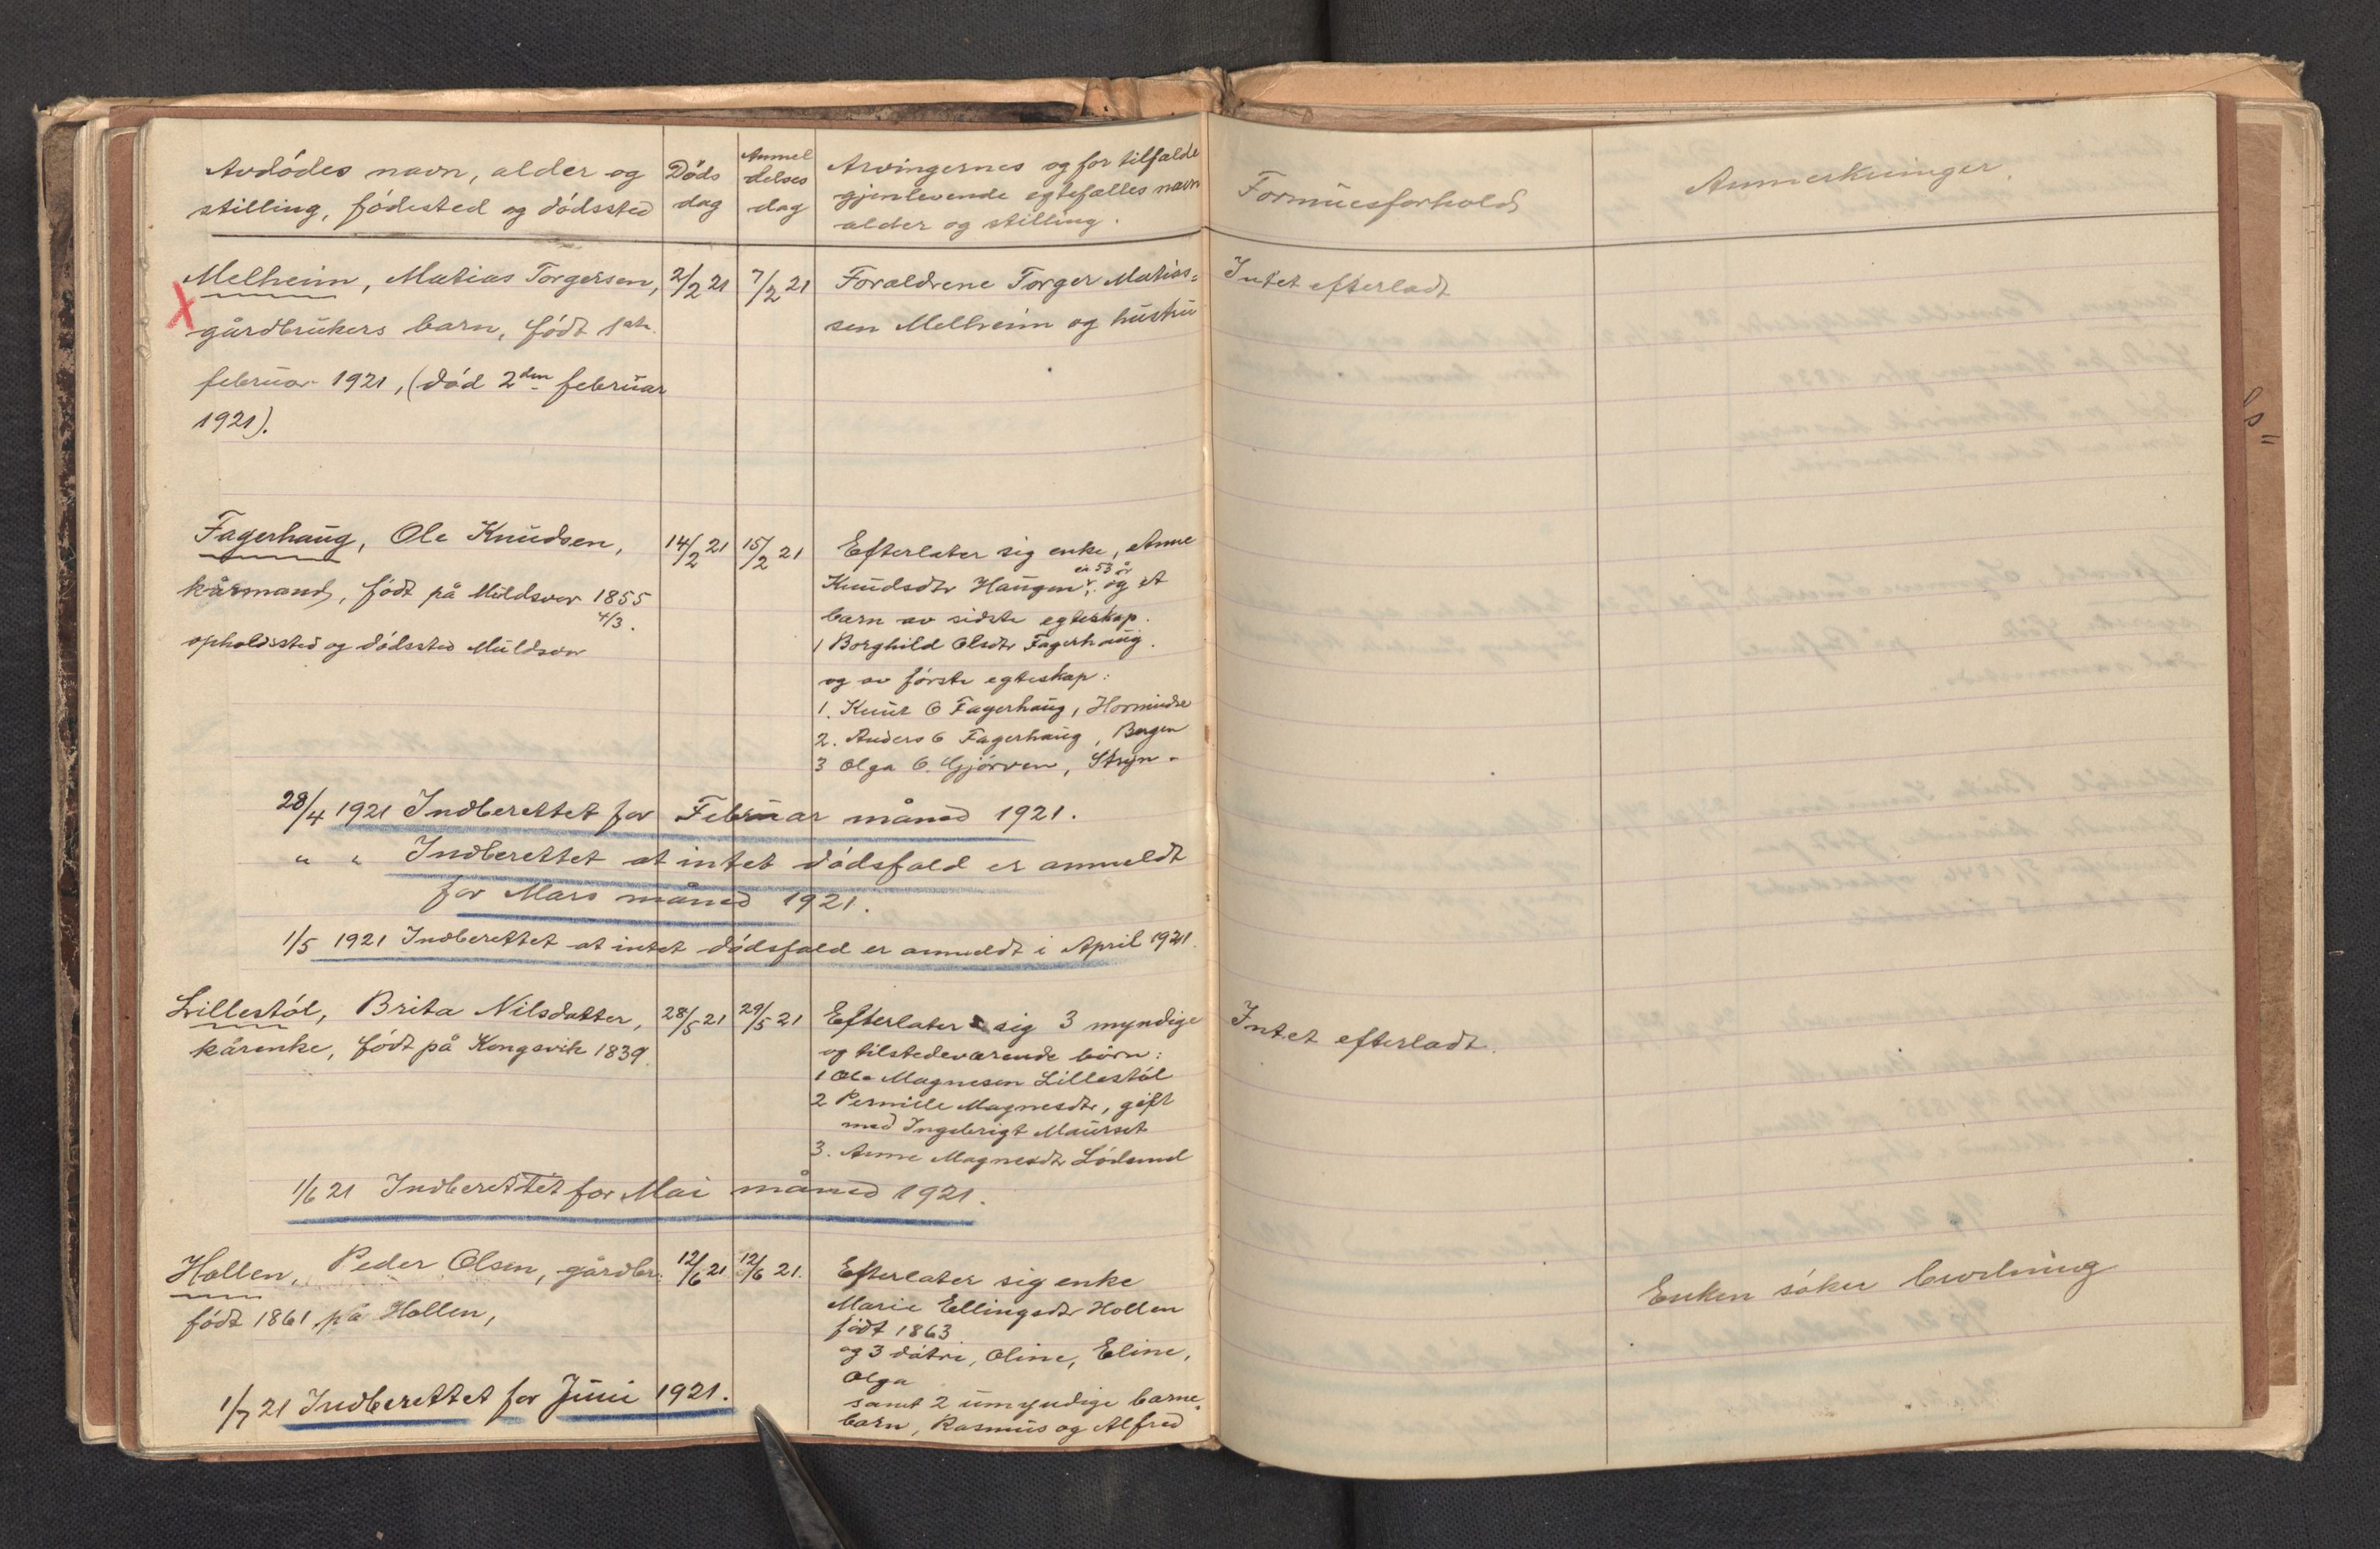 Avdödes navn, alder og
stilling, födested og dödssted
Döds
dag
Anmel
delses
dag
Arvingernes og for tilfælde
gjenlevende egtefælles navn
alder og stilling.
Formuesforhold
Anmerkninger.
X Melheim, Matias Torgersen,
gårdbrukers barn, födt 1ste
februar 1921, (död 2den februar
1921).
2/2 21
7/2 21
Forældrene Torger Matias-
sen Melheim og hustru
Intet efterladt
Fagerhaug, Ole Knudsen,
kårmand, födt på Muldsvor 1855
4/3.
opholdssted og dödssted Muldsvor
14/2 21
15/2 21
Efterlater sig enke, Anne
Knudsdtr Haugen, ca 53 år og et
barn av sidste egteskap.
1 Borghild Olsdtr Fagerhaug.
og av förste egteskap:
1. Knut O Fagerhaug, Hornindal
2. Anders O Fagerhaug, Bergen
3 Olga O. Gjörven, Stryn.
28/4 1921 Indberettet for Februar måned 1921.
" " Indberettet at intet dödsfald er anmeldt
for Mars måned 1921.
1/5 1921 Indberettet at intet dödsfald er anmeldt i April 1921.
Lillestöl, Brita Nilsdatter,
kårenke, födt på Kongsvik 1839.
28/5 21
29/5 21
Efterlater sig 3 myndige
og tilstedeværende börn:
1 Ole Magnesen Lillestöl
2 Pernille Magnesdtr, gift
med Ingebrigt Maurset
3. Anne Magnesdtr Lödemel
Intet efterladt.
1/6 21 Indberettet for Mai måned 1921.
Hollen, Peder Olsen, gårdbr.
födt 1861 på Hollen,
12/6 21
12/6 21.
Efterlater sig enke
Marie Ellingsdtr Hollen
födt 1863
og 3 dötre, Oline, Eline,
Olga
samt 2 umyndige barne-
barn, Rasmus og Alfred
Enken söker bevilning
1/7 21 Indberettet for Juni 1921.